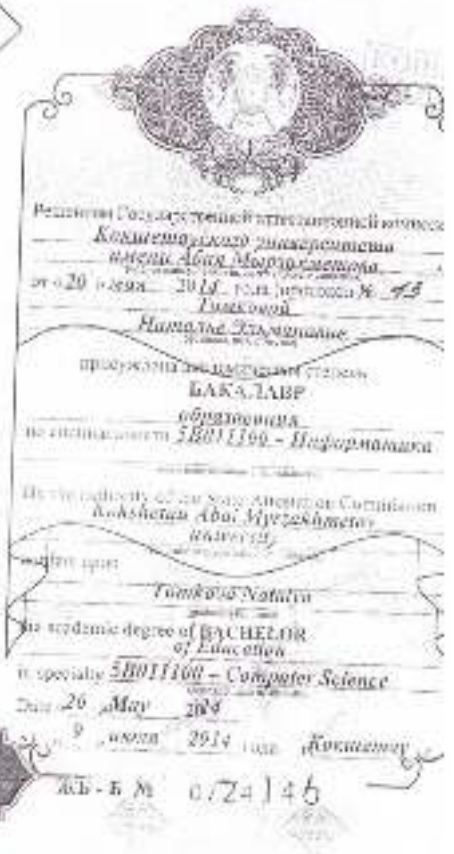 Решением Государственной аттестационной комиссии
Кокшетауского университета
имени Абая Мырзахметова
от «20 » мая 2014 года (протокол № 13
Наталье
присуждена академическая степень
БАКАЛАВР
образования
по специальности 5В011100 – Информатика
By the authority of the State Attestation Commission
Kokshetau Abai Myrzakhmetov
university
Natalya
the academic degree of BACHELOR
of Education
in specialty 5B011100 – Computer Science
Date «20 » May 2014
9 июня 2014 года Кокшетау
ЖБ - Б № 0724146